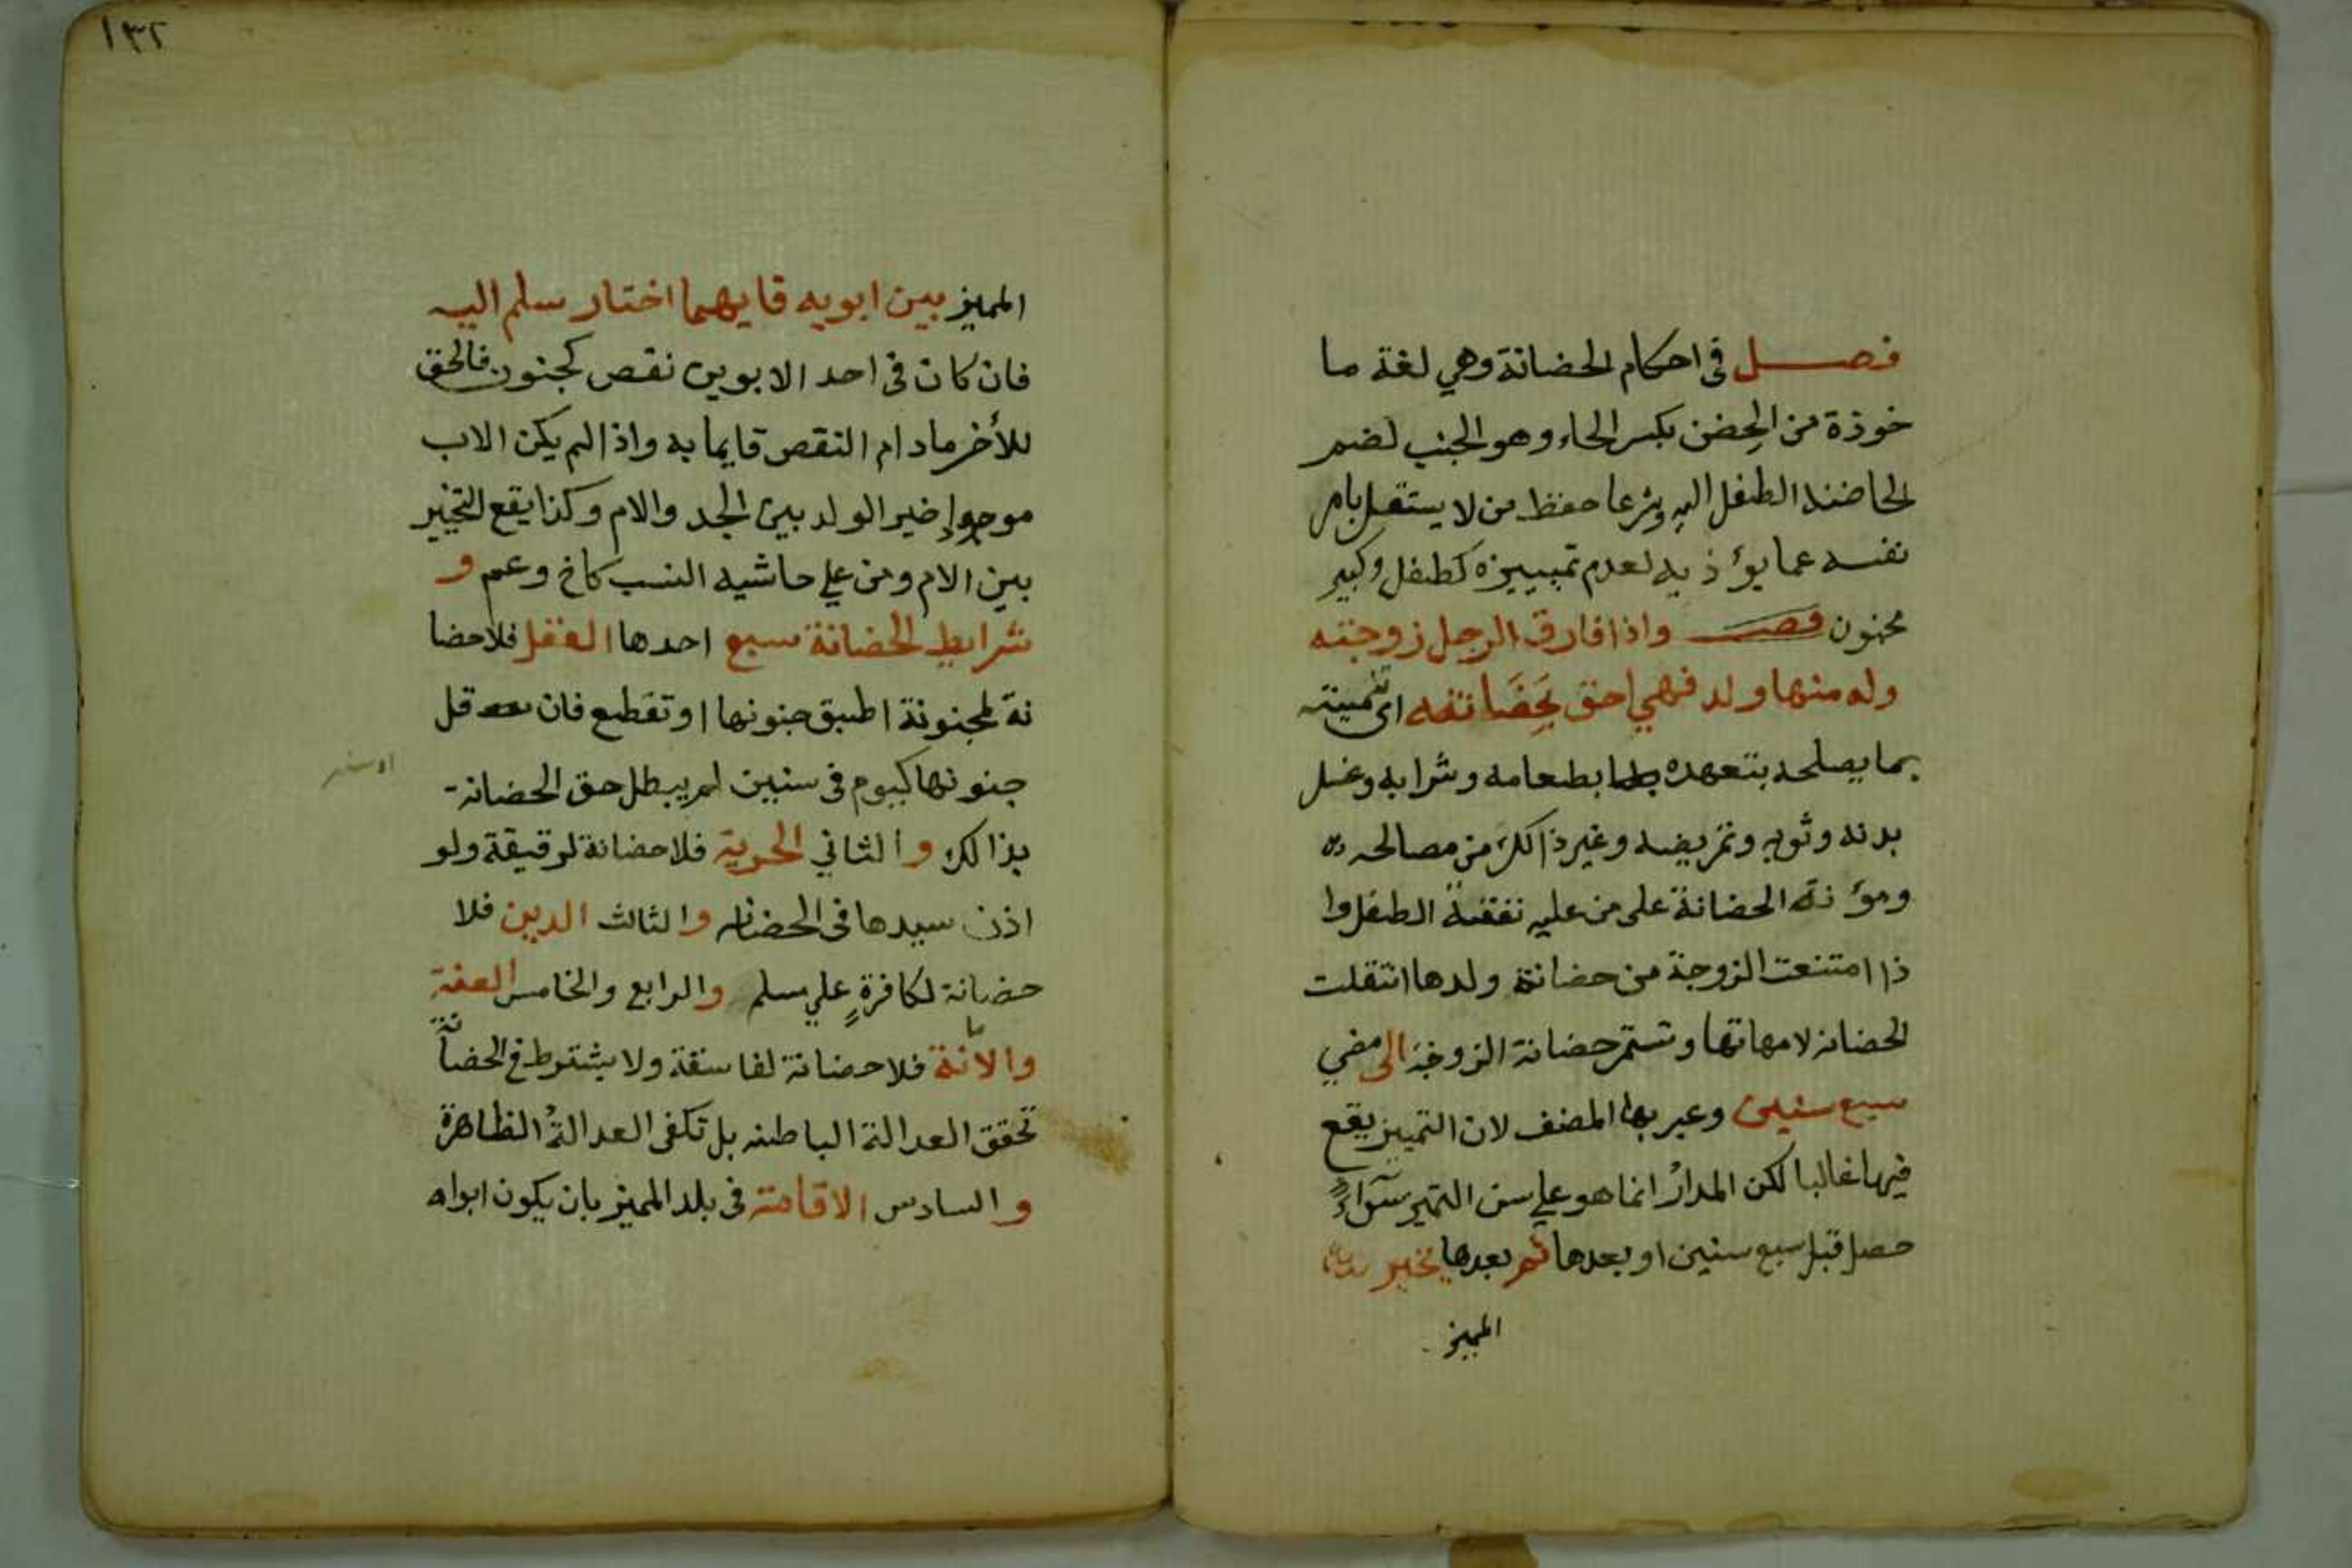 فصل في احكام الحضانة وهي لغة ما
خوذة من الحِضن بكسر الحاء وهو الجنب لضم
الحاضنة الطفل اليه وشرعا حفظ من لا يستقل بامر
نفسه عما يؤذيه لعدم تمييزه كطفل وكبير
مجنون واذا فارق الرجل زوجته
وله منها ولد فهي احق بحضانته اى تنميته
بما يصلحه بتعهده بطعامه وشرابه وغسل
بدنه وثوبه وتمريضه وغير ذالك من مصالحه
ومؤنة الحضانة على من عليه نفقة الطفل وا
ذا امتنعت الزوجة من حضانة ولدها انتقلت
الحضانة لامهاتها وتستمر حضانة الزوجة الى مضي
سبع سنين وعبر بها المصنف لان التمييز يقع
فيها غالبا لكن المدارُ انما هو على سن التميز سوآءٌ
حصل قبل سبع سنين او بعدها ثم بعدها يخير
المميز
١٣٢
المميز بين ابويه فايهما اختار سلم اليه
فان كان فى احد الابوين نقص كجنون فالحق
للأخر مادام النقص قايما به واذا لم يكن الاب
موجوا خير الولد بين الجد والام وكذا يقع التخيير
بين الام ومن علي حاشيه النسب كاخ وعم و
شرايط الحضانة سبع احدها العقل فلا حضا
نة لمجنونة اطبق جنونها او تقطع فان قل
جنونها كيوم فى سنين لم يبطل حق الحضانة
بذالك والثاني الحرية فلا حضانة لرقيقة ولو
اذن سيدها فى الحضانه والثالث الدين فلا
حضانة لكافرةٍ علي مسلم والرابع والخامس العفة
والامانة فلا حضانة لفاسقة ولا يشترط في الحضانة
تحقق العدالة الباطنه بل تكفى العدالةُ الظاهرة
والسادس الاقامة فى بلد المميز بان يكون ابواه